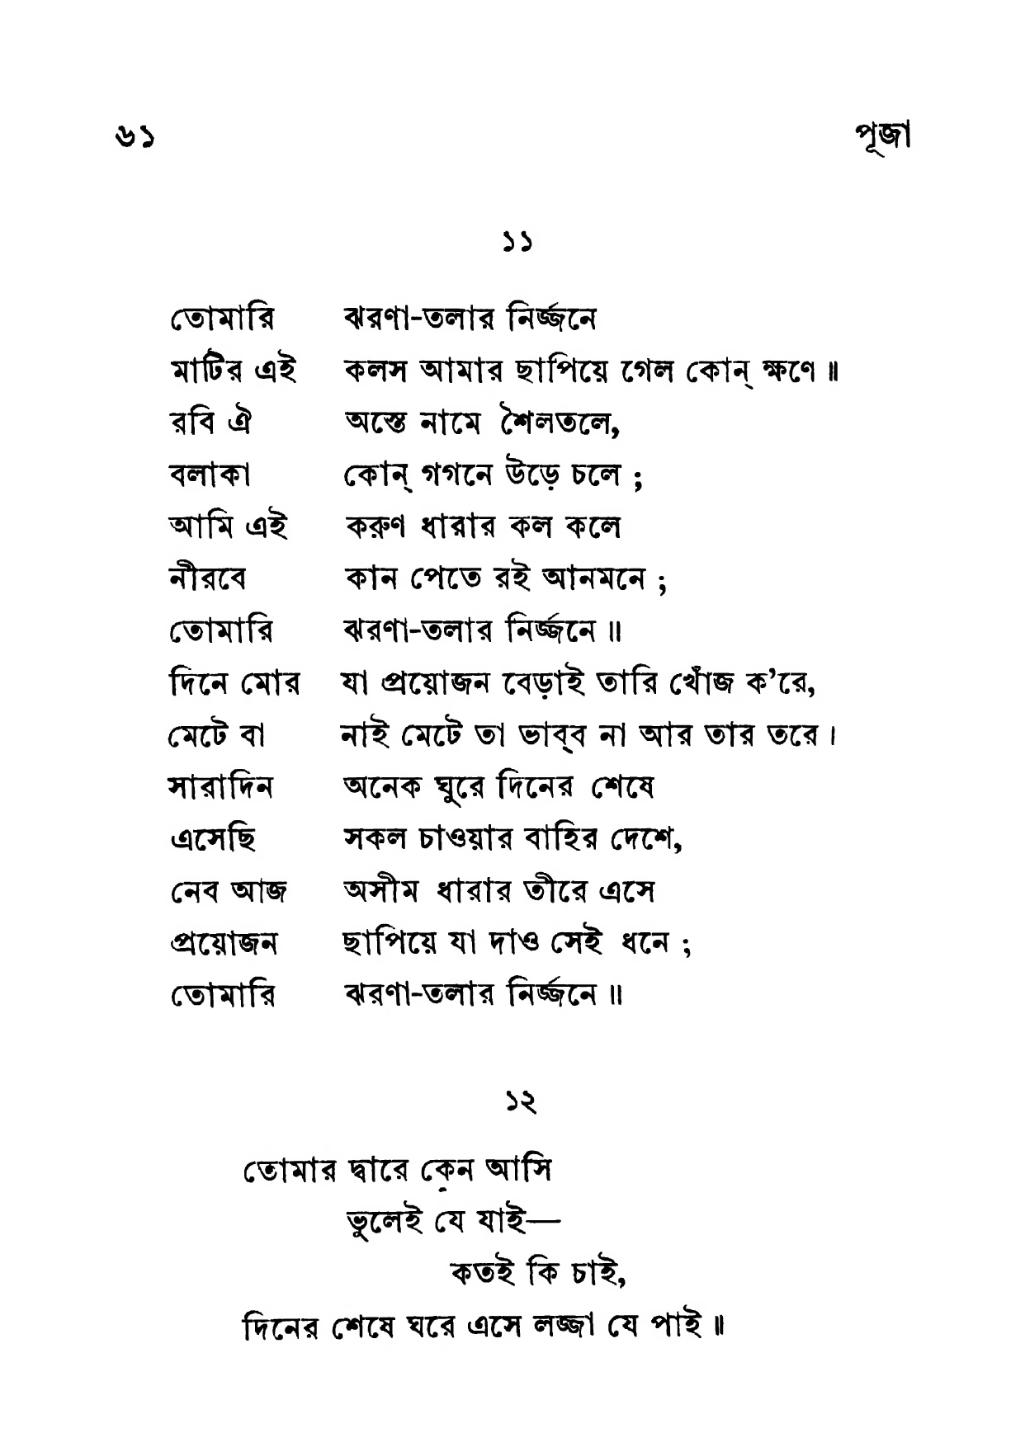 ৬১ পূজা
১১
তোমারি ঝরণা-তলার নির্জ্জনে
মাটির এই কলস আমার ছাপিয়ে গেল কোন্ ক্ষণে॥
রবি ঐ অস্তে নামে শৈলতলে,
বলাকা কোন্ গগনে উড়ে চলে ;
আমি এই করুণ ধারার কল কলে
নীরবে কান পেতে রই আনমনে ;
তোমারি ঝরণা-তলার নির্জ্জনে॥
দিনে মোর যা প্রয়োজন বেড়াই তারি খোঁজ ক'রে,
মেটে বা নাই মেটে তা ভাব্‌ব না আর তার তরে।
সারাদিন অনেক ঘুরে দিনের শেষে
এসেছি সকল চাওয়ার বাহির দেশে,
নেব আজ অসীম ধারার তীরে এসে
প্রয়োজন ছাপিয়ে যা দাও সেই ধনে ;
তোমারি ঝরণা-তলার নির্জ্জনে॥
১২
তোমার দ্বারে কেন আসি
ভুলেই যে যাই—
কতই কি চাই,
দিনের শেষে ঘরে এসে লজ্জা যে পাই॥